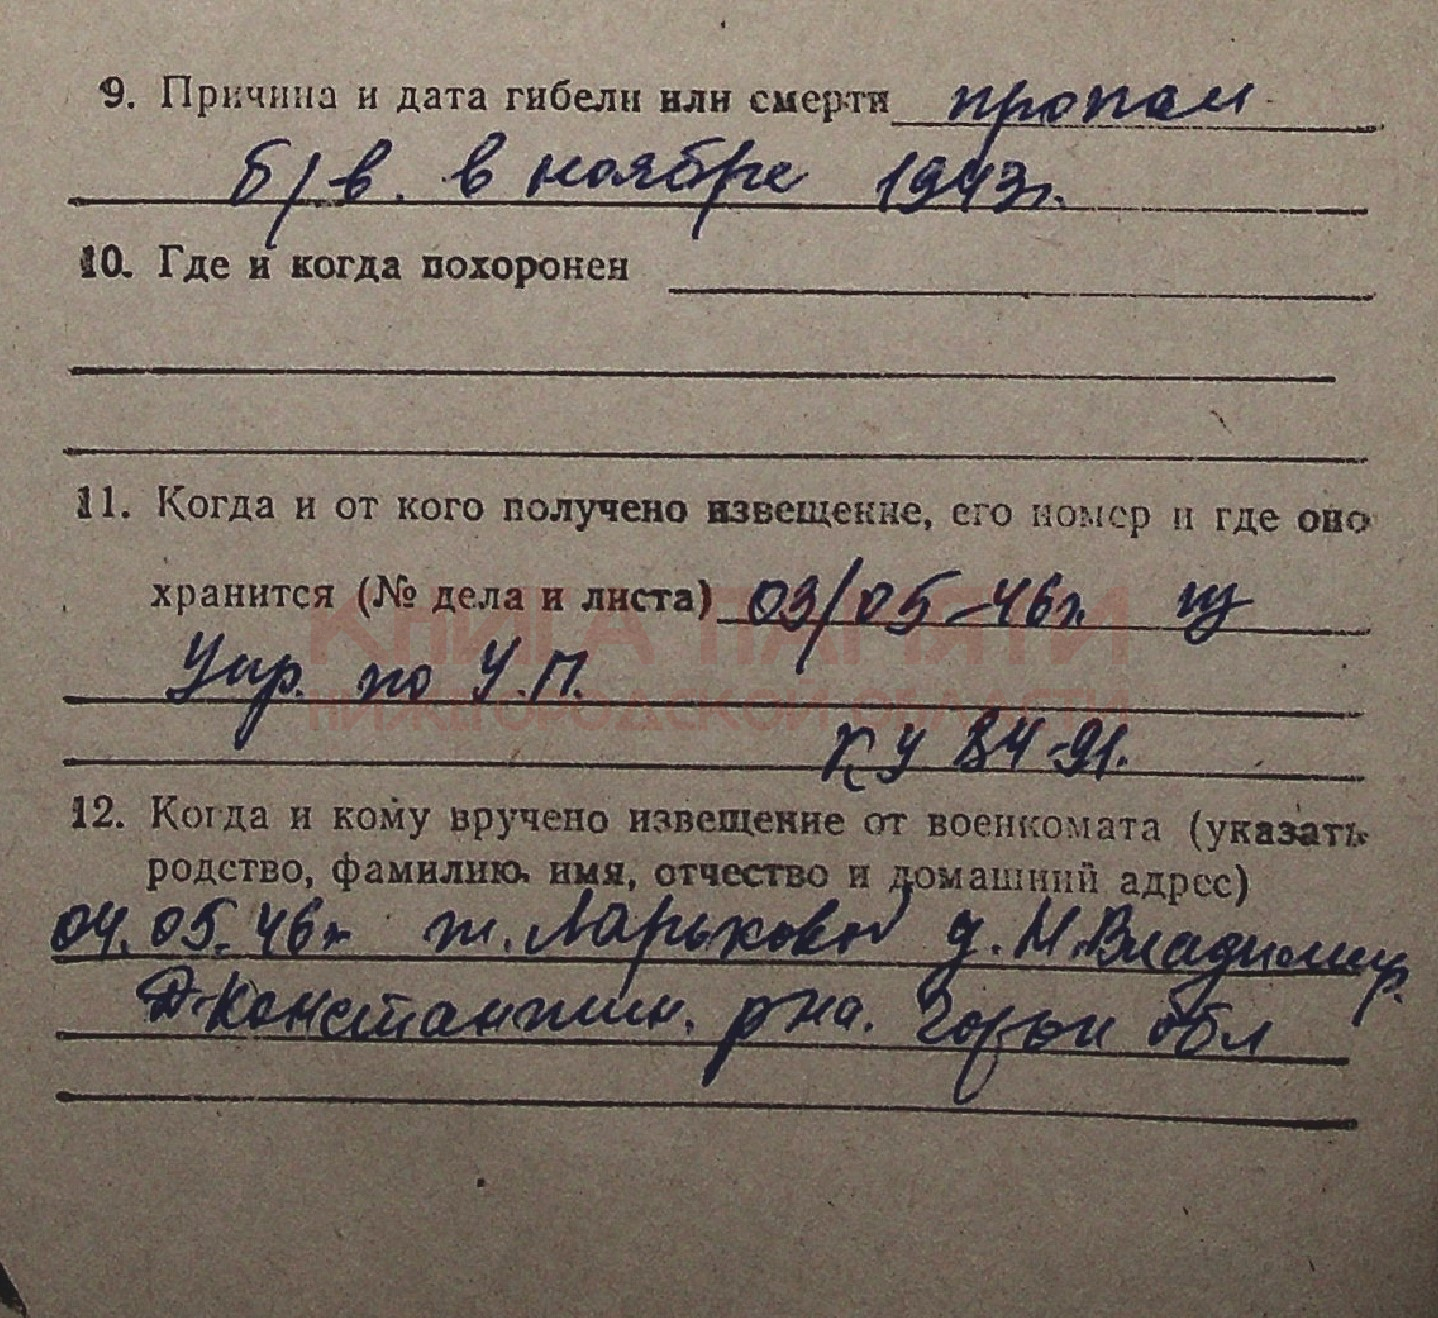 9. Причина и дата гибели или смерти пропал
б/в. в ноябре 1943г.
10. Где и когда похоронен
11. Когда и от кого получено извещение, его номер и где оно
хранится (№ дела и листа) 03/05-46г. из
КНИГА ПАМЯТИ
Упр. по У.П.
НИЖЕГОРОДСКОЙ ОБЛАСТИ
КУ 84-91.
12. Когда и кому вручено извещение от военкомата (указать
родство, фамилию, имя, отчество и домашний адрес)
04.05.46г ж. Ларькова д. М.Владимир.
Д-Константин. р-на. Горьк обл